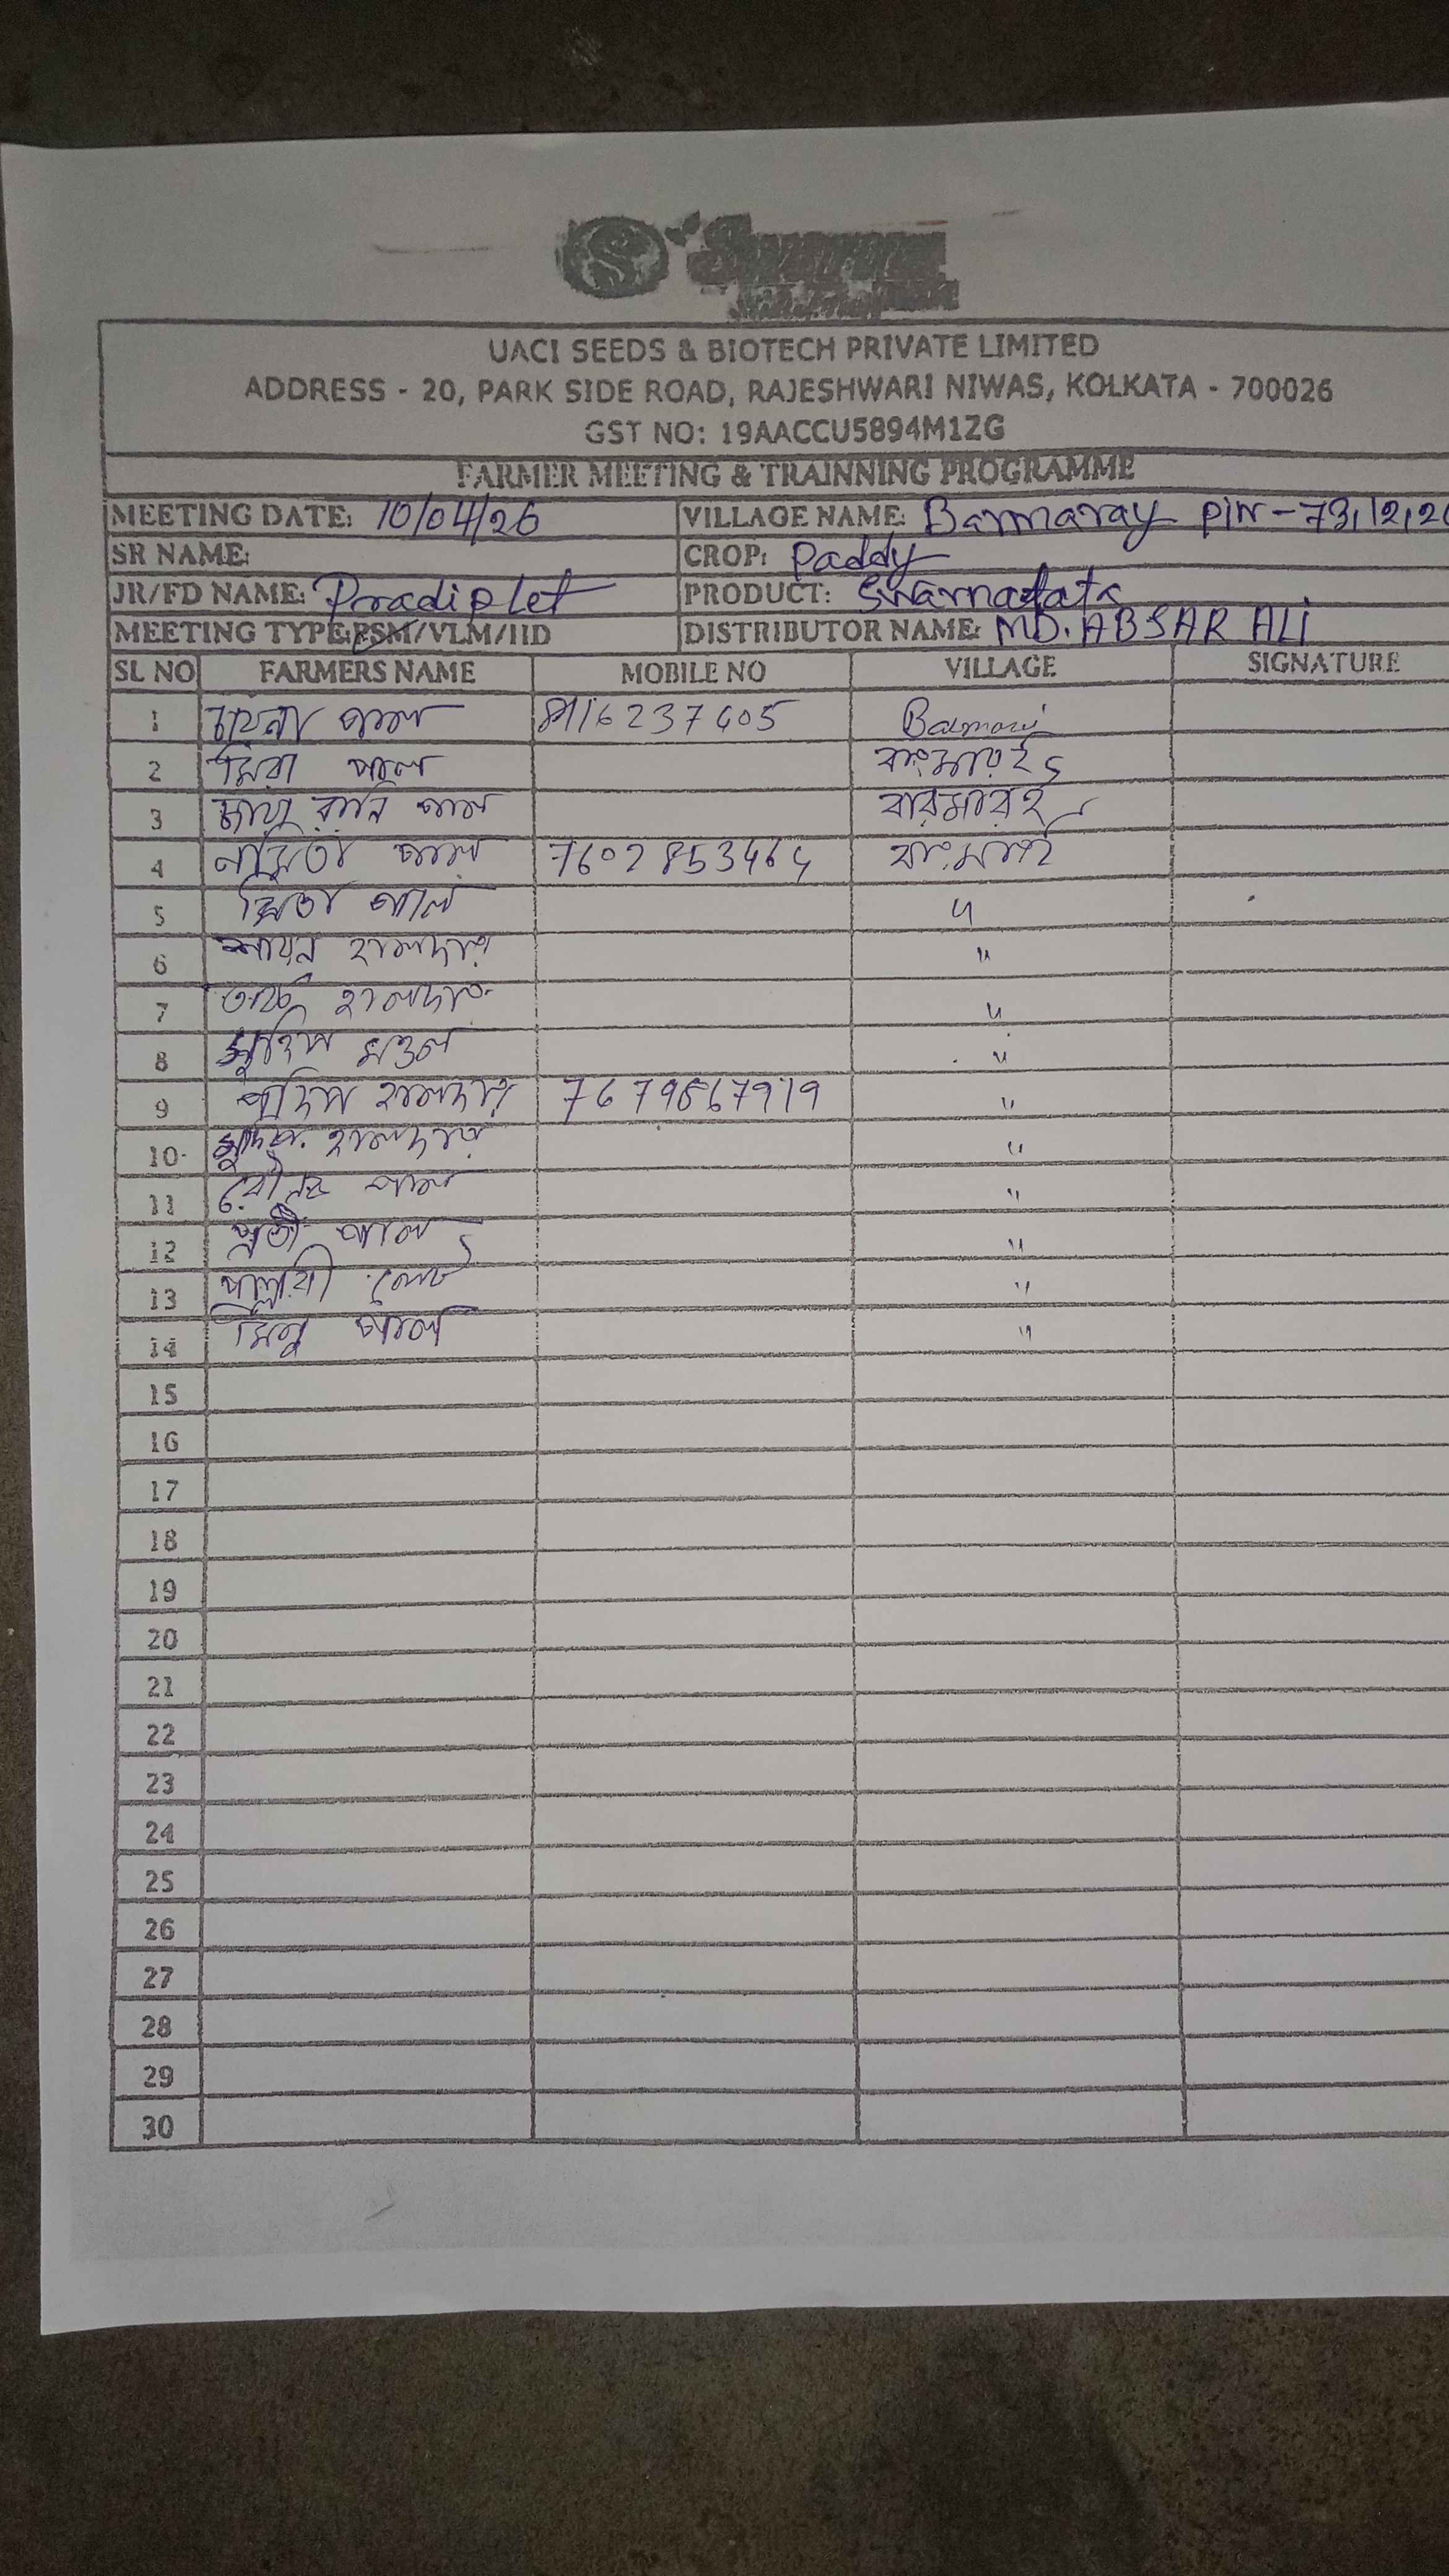 UACI SEEDS & BIOTECH PRIVATE LIMITED
ADDRESS - 20, PARK SIDE ROAD, RAJESHWARI NIWAS, KOLKATA - 700026
GST NO: 19AACCU5894M1ZG
FARMER MEETING & TRAINNING PROGRAMME
MEETING DATE: 10/04/26 VILLAGE NAME: Barmaray PIN-73,12,2
SR NAME: CROP: Paddy
JR/FD NAME: Pradip Let PRODUCT:
MEETING TYPE: PSM/VLM/IID DISTRIBUTOR NAME: MD. ABSAR ALI
SL NO FARMERS NAME MOBILE NO VILLAGE SIGNATURE
1 চায়না পাল
2 মিরা পাল
3 রানি পাল বারমারই
4 নমিতা পাল
5 মিতা পাল "
6 হালদার "
7 হালদার "
8 মণ্ডল "
9 হালদার "
10 হালদার "
11 পাল "
12 পাল "
13 পল্লবী লেট "
14 মিনু পাল "
15
16
17
18
19
20
21
22
23
24
25
26
27
28
29
30